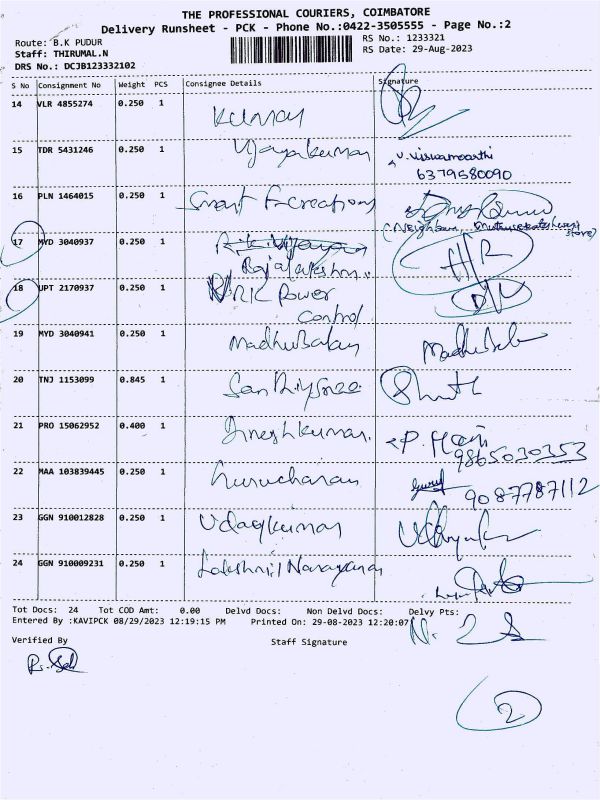 THE PROFESSIONAL COURIERS, COIMBATORE
Delivery Runsheet - PCK - Phone No.:0422-3505555 - Page No.:2
Route: B.K PUDUR
RS No.: 1233321
Staff: THIRUMAL.N
RS Date: 29-Aug-2023
DRS No.: DCJB123332102
S No Consignment No Weight PCS Consignee Details Signature
14 VLR 4855274 0.250 1 Kumar
15 TDR 5431246 0.250 1 Vijayakumar v.viswamoorthi
6379580090
16 PLN 1464015 0.250 1 Smart F-creations
(Neighbour
store)
17 MYD 3040937 0.250 1
Rajalakshmi
18 UPT 2170937 0.250 1 RK Power
Control
19 MYD 3040941 0.250 1 Madhubalan Madhubala
20 TNJ 1153099 0.845 1 Santhiysree
21 PRO 15062952 0.400 1 Dineshkumar P. Mani
9865030353
22 MAA 103839445 0.250 1 Gurucharan guru
9087787112
23 GGN 910012828 0.250 1 Udaykumar
24 GGN 910009231 0.250 1 Lakshmi Narayanan
Tot Docs: 24 Tot COD Amt: 0.00 Delvd Docs: Non Delvd Docs: Delvy Pts:
Entered By :KAVIPCK 08/29/2023 12:19:15 PM Printed On: 29-08-2023 12:20:07
Verified By Staff Signature
2